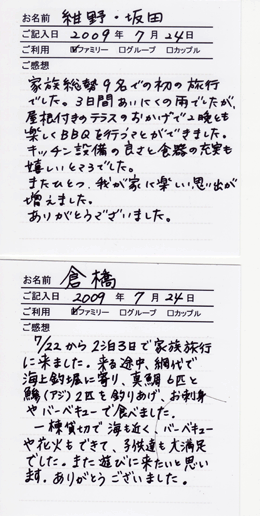 お名前 紺野・坂田
ご記入日 2009 年 7 月 24 日
ご利用 ☑ファミリー □グループ □カップル
ご感想
家族総勢9名での初の旅行
でした。3日間あいにくの雨でしたが、
屋根付きのテラスのおかげで2晩とも
楽しくBBQを行うことができました。
キッチン設備の良さと食器の充実も
嬉しいところでした。
またひとつ、我が家に楽しい思い出が
増えました。
ありがとうございました。
お名前 倉橋
ご記入日 2009 年 7 月 24 日
ご利用 ☑ファミリー □グループ □カップル
ご感想
7/22から2泊3日で家族旅行
に来ました。来る途中、網代で
海上釣堀に寄り、真鯛6匹と
鯵(アジ)2匹を釣りあげ、お刺身
やバーベキューで食べました。
一棟貸切で海も近く、バーベキュー
や花火もできて、子供達も大満足
でした。また遊びに来たいと思い
ます。ありがとうございました。